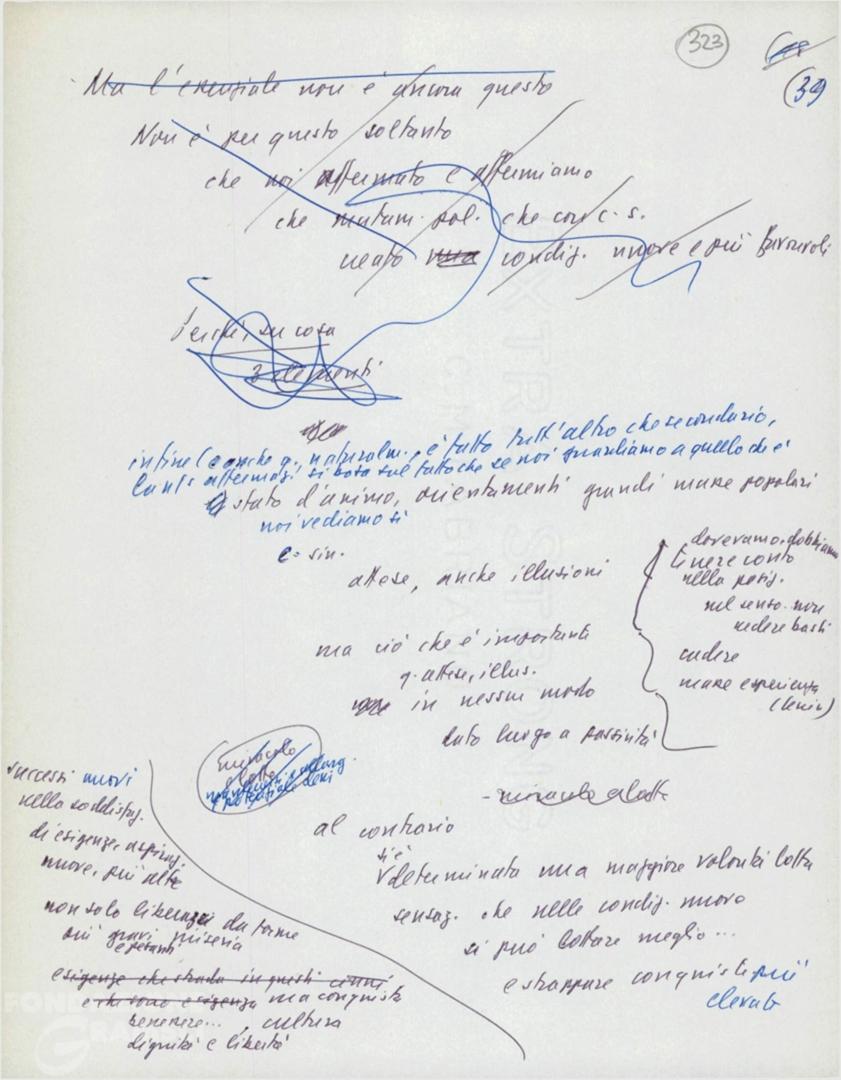 323
(39
Ma l'essenziale non è ancora questo
Non è per questo soltanto
che noi affermato e affermiamo
che mutam. pol. che con c. s.
creato condiz. nuove e più favorevoli
Perché, su cosa
3 elementi
infine (e anche q. naturalm., è fatto tutt'altro che secondario,
affermaz. si basa sul fatto che se noi guardiamo a quello che è
stato d'animo, orientamenti grandi masse popolari
noi vediamo sì
e. sin.
attese, anche illusioni
ma ciò che è importante
q. attese, illus.
in nessun modo
dato luogo a passività
dovevamo, dobbiamo
tenere conto
nella posiz.
nel senso non
credere basti
cadere
masse esperienza
(Lenin)
miracolo
e lotta
- miracolo e lotta
al contrario
si è
determinata una maggiore volontà lotta
sensaz. che nelle condiz. nuove
si può lottare meglio...
e strappare conquiste più
elevate
successi nuovi
nella soddisfaz.
di esigenze, aspiraz.
nuove, più alte
non solo liberazi da forme
più gravi miseria
e pesanti
esigenze che strada in questi anni
e chi sono esigenza ma conquista
benessere..., cultura
dignità e libertà
FONDAZIONE
GRAMSCI
EXTRA STRONG